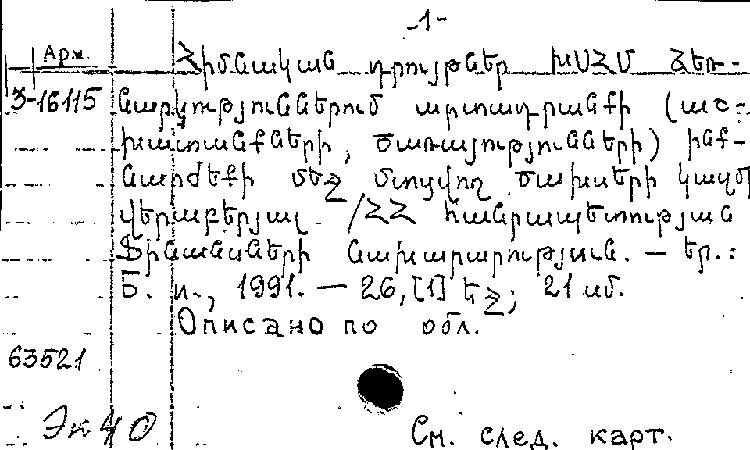 -1-
Арм. Հիմնական դրույթներ ԽՍՀՄ ձեռ-
З-16115 նարկություններում արտադրանքի (աշ-
խատանքների, ծառայությունների) ինք-
նարժեքի մեջ մտնվող ծախսերի կազմի
վերաբերյալ /ՀՀ հանրապետության
Ֆինանսների նախարարություն. — Եր.:
Б. и., 1991. — 26, [1] էջ; 21 սմ.
Описано по обл.
63521
Эк 40
См. след. карт.